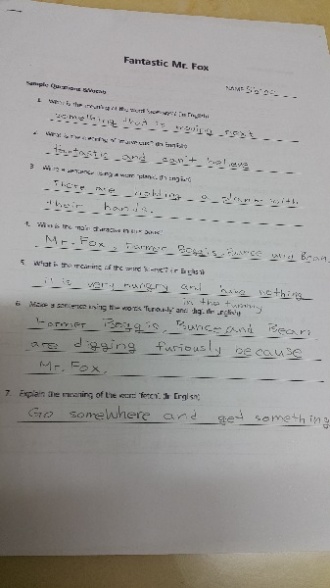 Fantastic Mr. Fox
Sample Questions
NAME:
1. What is the meaning of the word (in English)
something that is next
2. What is the meaning of (in English)
fantastic and can't believe
3. Write a sentence using a word (in English)
There are holding a with
their hands.
4. Who is the main character in the
Mr. Fox, Farmer Boggis, Bunce and Bean.
5. What is the meaning of the word (in English)
it is very hungry and have nothing
in the tummy
6. Make a sentence using the words "furiously" and dig. (in English)
Farmer Boggis, Bunce and Bean
are digging furiously because
Mr. Fox.
7. Explain the meaning of the word 'fetch'. (in English)
Go somewhere and get something